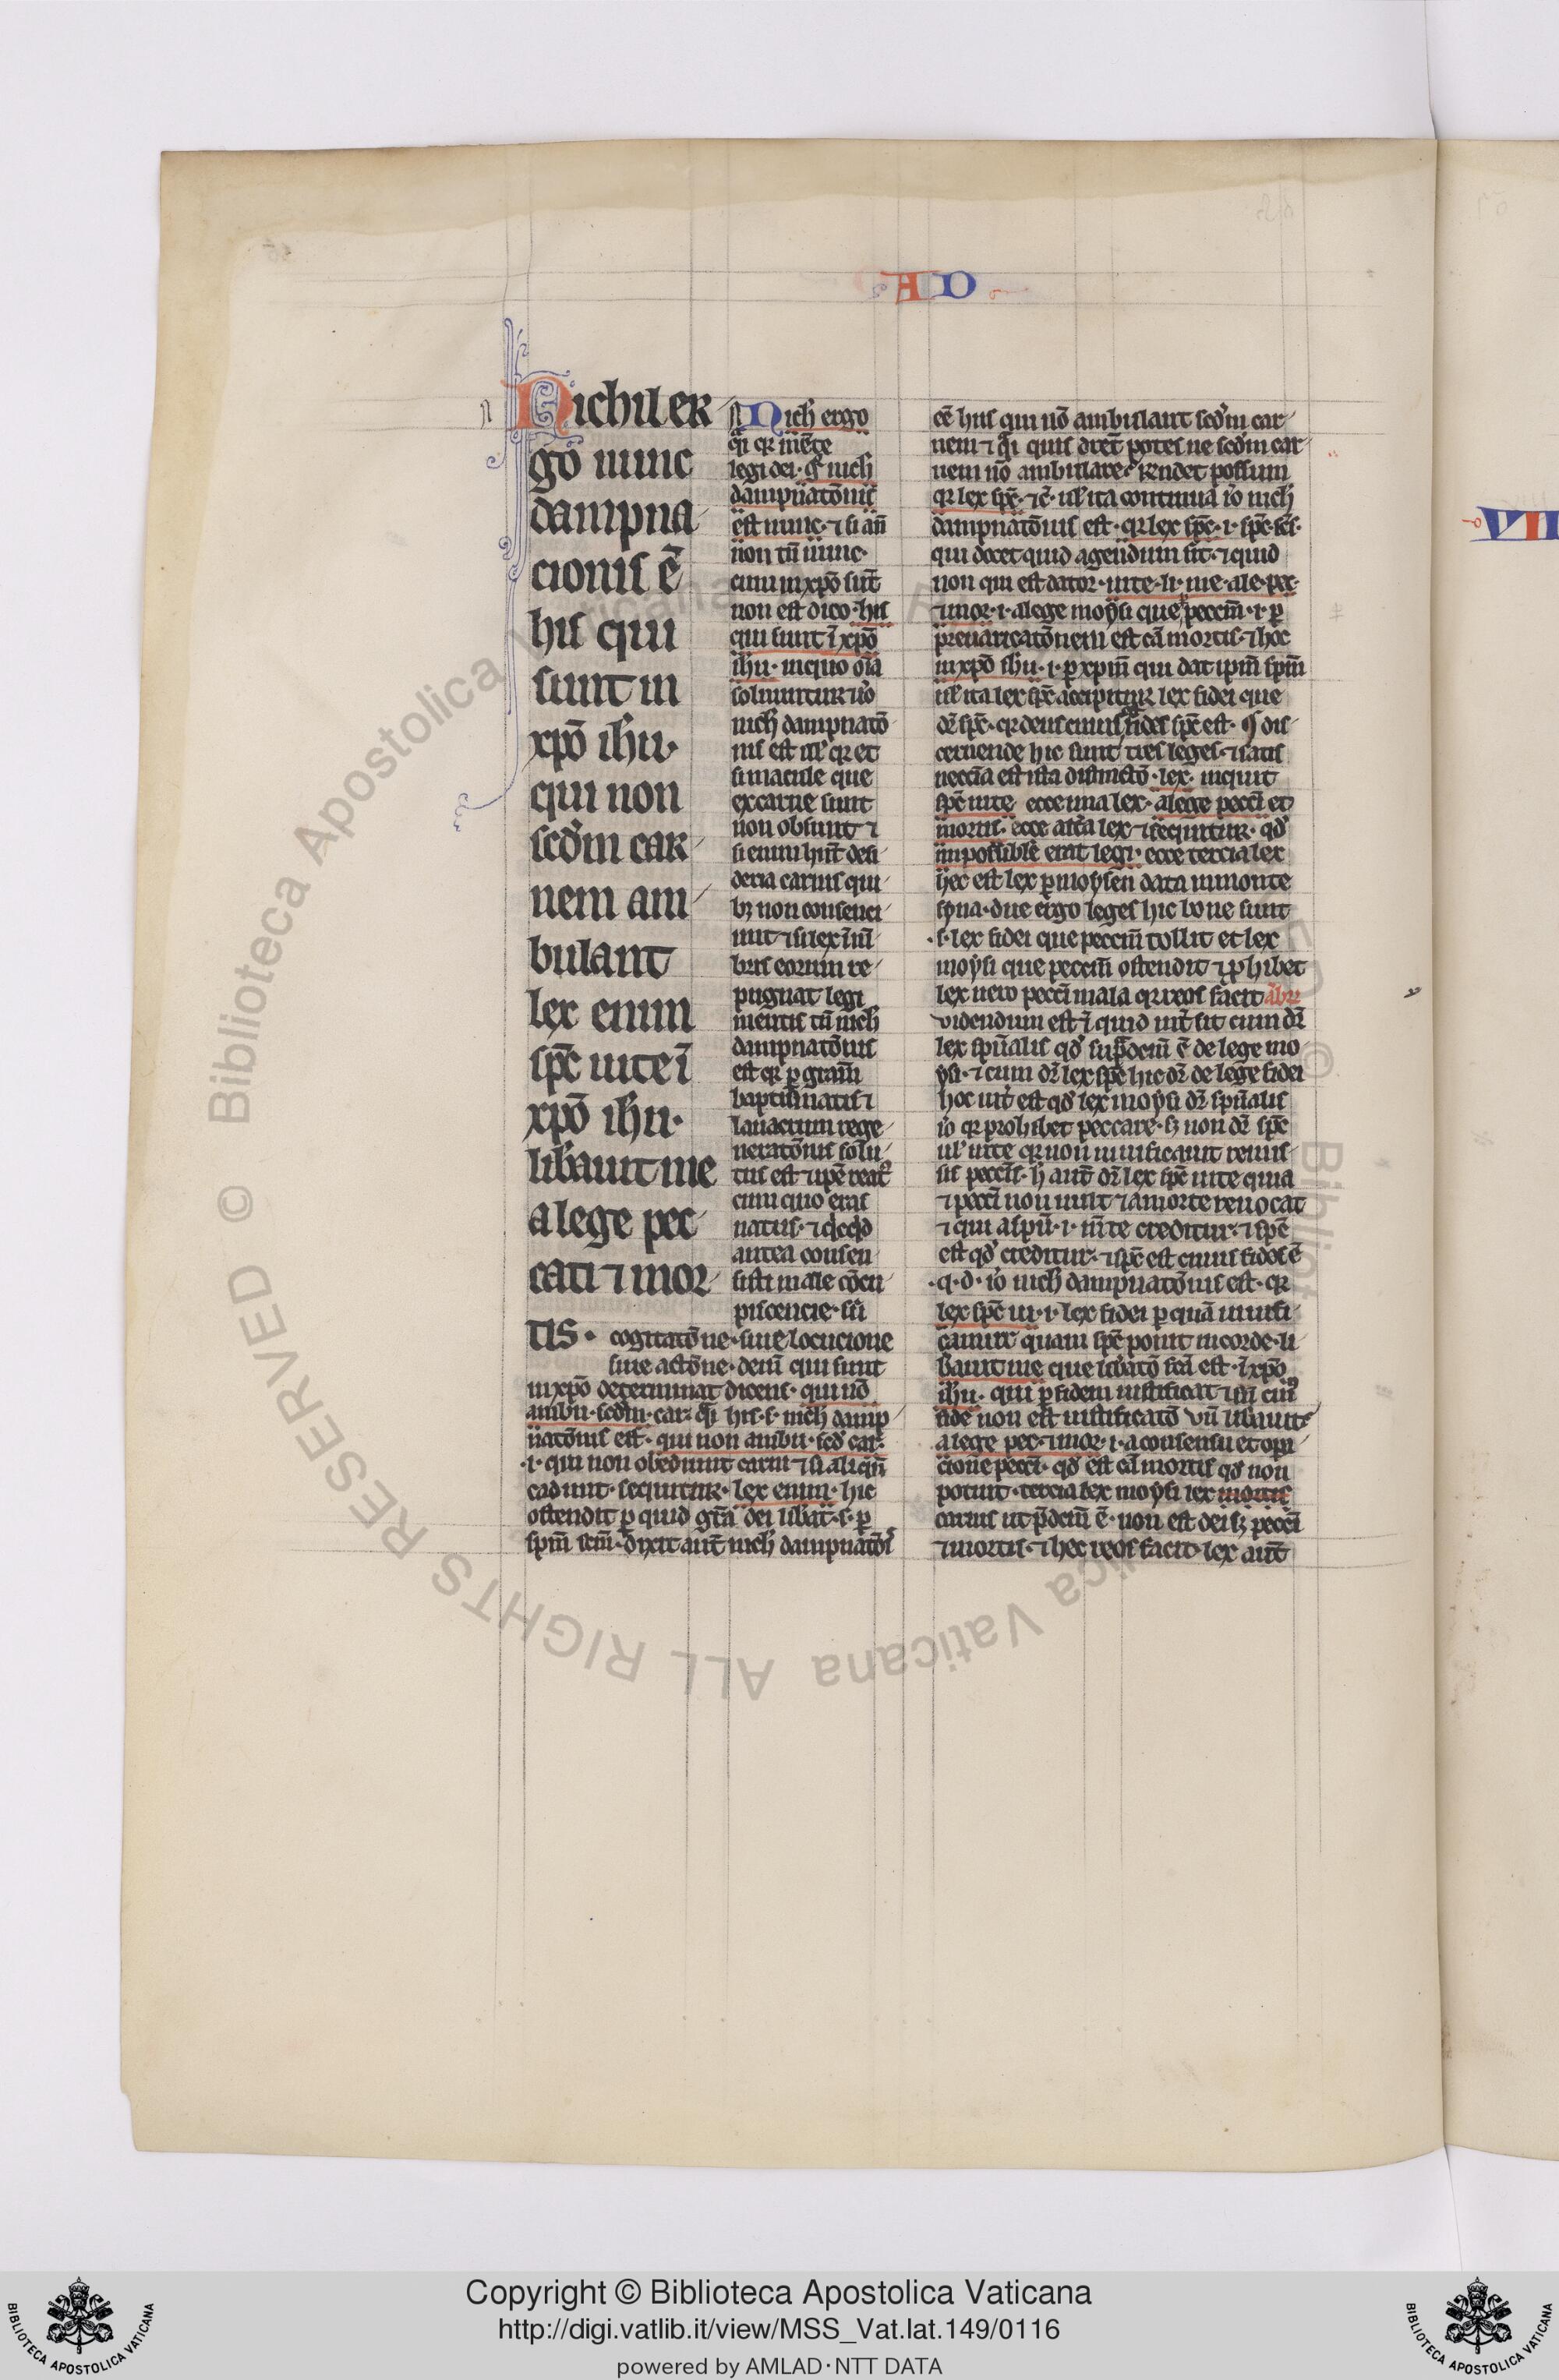 AD
Nichil er
go nunc
dampna
cionis ē
his qui
sunt in
xpō ihu·
qui non
scdm car
nem am
bulant
lex enim
spc̄ uite ī
xpō ihu·
libauit me
a lege pec
cati ⁊ mor
tis·
Nich ergo
legi dei· g° nich
dampnatōnis
est nunc· ⁊ si an̄
non tn̄ nunc·
cum in xpō sūt
non est dico· his
qui sunt ī xpō
ihu· in quo oīa
soluuntur iō
nich dampnatō
nis est ul' qr et
si macule que
ex carne sunt
non obsunt ⁊
si enim hn̄t desi
deria carnis qui
bꝫ non consenci
unt ⁊ si lex ī mē
bris eorum re
pugnat legi
mentis tn̄ nich
dampnatōnis
est qr ꝑ gram̄
baptismatis ⁊
lauacrum rege
neratōnis solu
tus est
cum quo eras
natus·
antea consen
sisti male cōcu
piscencie· siū
cogitatōne· siue locucione
siue actōne· dein̄ qui sunt
in xpō determinat dicens· qui nō
ambu· scdm· car· q̄i his· s· nich damp
natōnis est· qui non ambu· scd car·
·i· qui non obediunt carni ⁊ si aliqn̄
cadunt· sequitur· lex enim· hic
ostendit ꝑ quid grā dei libat· s· ꝑ
spm̄ scm̄· dixit aut̄ nich dampnatōis
eē his qui nō ambulant scdm car
nem ⁊ q̄i quis dicet potes ne scdm car
nem nō ambulare· rendet possum
qr lex spc̄· ⁊c̄· ul' ita continua iō nich
dampnatōnis est· qr lex spc̄· i· spc̄· sc̄s·
qui docet quid agendum sit· ⁊ quid
non qui est dator· uite· li· me· a le· pec·
⁊ mor· i· a lege moysi que peccm̄· i· ꝑ
preuaricatōnem est cā mortis· ⁊ hoc
in xpō ihu· i· ꝑ xpm̄ qui dat ipm̄ spm̄
ul' ita lex spc̄ accipitur lex fidei que
dr̄ spc̄· qr deus cuius fides spc̄ est· ¶ dis
cernende hic sunt tres leges· ⁊ satis
neccīa est ista distinctō· lex· inquit
spc̄ uite ecce una lex· a lege pecci et
mortis· ecce altā lex ⁊ sequitur· qd'
impossible erat legi· ecce tercia lex
hec est lex ꝑ moysen data in monte
syna· due ergo leges hic bone sunt
·s· lex fidei que peccm̄ tollit et lex
moysi que peccm̄ ostendit ⁊ ꝓhibet
lex uero pecci mala qr reos facit
videndum est ī quid int̄sit cum dr̄
lex spūalis qd' sup̄dcm̄ ē de lege mo
ysi· ⁊ cum dr̄ lex spc̄ hic dr̄ de lege fidei
hoc int̄ est qd' lex moysi dr̄ spūalis
iō qr prohibet peccare· sꝫ non dr̄ spc̄
ul' uite qr non uiuificauit remis
sis peccīs· h̄ aut̄ dr̄ lex spc̄ uite quia
⁊ pecci non uult ⁊ a morte reuocat
⁊ qui a spū· i· m̄te creditur· ⁊ spc̄
est qd' creditur· ⁊ spc̄ est cuius fidei ē
·q· d· iō nich dampnatōnis est· qr
lex spc̄ ui· i· lex fidei ꝑ quā uiuifi
camur quam spc̄ ponit in corde· li
bauit me que libatō fcā est· ī xpō
ihu· qui ꝑ fidem iustificat
fide non est iustificatō vn̄ libauit
a lege pec· ⁊ mor· i· a consensu et opa
cione pecci· qd' est cā mortis qd' non
potuit· tercia lex moysi lex mortis
carnis ut p̄dcm̄ ē· non est dei sꝫ pecci
⁊ mortis· ⁊ hec reos facit· lex aut̄
VII
Copyright © Biblioteca Apostolica Vaticana
http://digi.vatlib.it/view/MSS_Vat.lat.149/0116
powered by AMLAD·NTT DATA
BIBLIOTECA APOSTOLICA VATICANA
BIBLIOTECA APOSTOLICA VATICANA
© Biblioteca Apostolica Vaticana ALL RIGHTS RESERVED